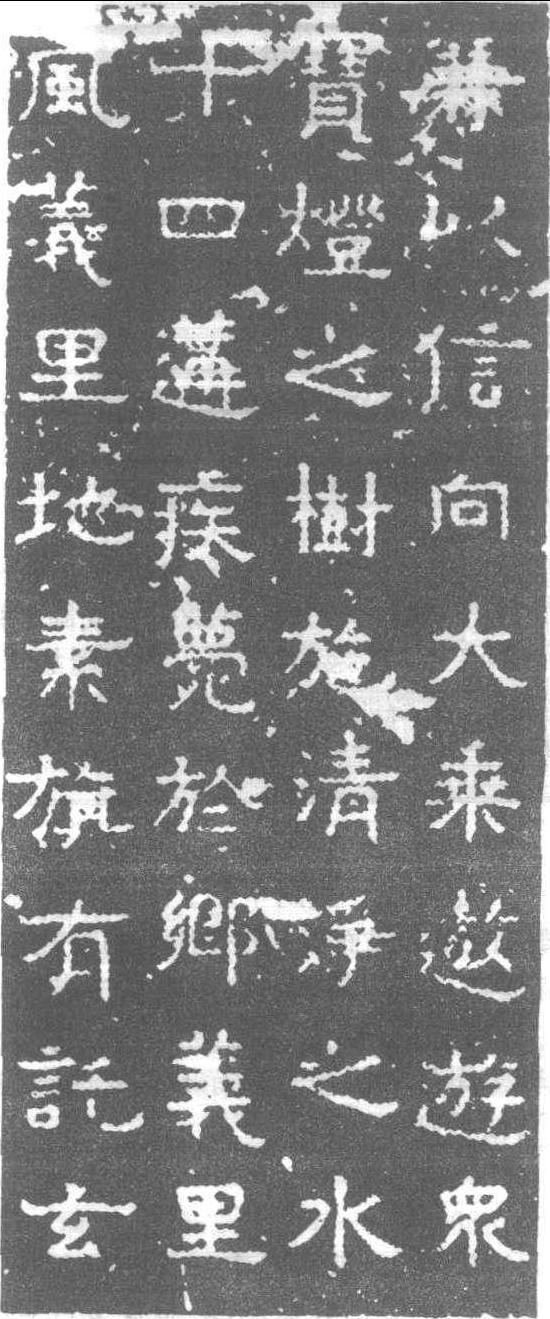 兼以信向大乘遨遊衆
寶燈之樹施清淨之水
十四遘疾薨於鄉義里
風義里地素有託玄